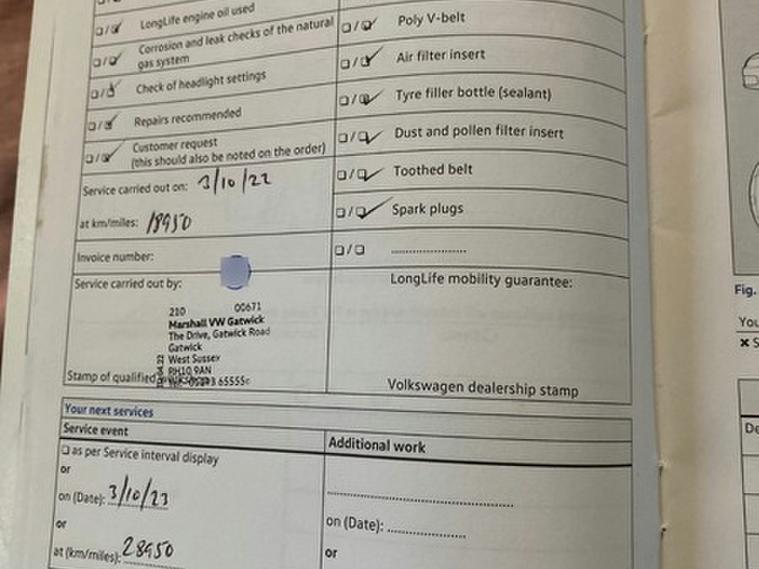 LongLife engine oil used
Corrosion and leak checks of the natural
gas system
Check of headlight settings
Repairs recommended
Customer request
(this should also be noted on the order)
Service carried out on: 3/10/22
at km/miles: 18950
Invoice number:
Service carried out by:
210 00671
Marshall VW Gatwick
The Drive, Gatwick Road
Gatwick
West Sussex
RH10 9AN
Stamp of qualified
Poly V-belt
Air filter insert
Tyre filler bottle (sealant)
Dust and pollen filter insert
Toothed belt
Spark plugs
LongLife mobility guarantee:
Volkswagen dealership stamp
Your next services
Service event
as per Service interval display
or
on (Date): 3/10/23
or
at (km/miles): 28950
Additional work
on (Date):
or
Fig.
You
De